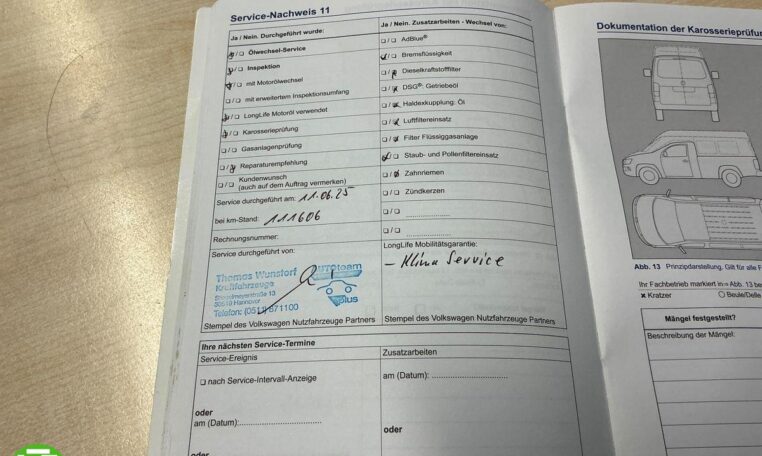 Service-Nachweis 11
Ja / Nein. Durchgeführt wurde:
Ölwechsel-Service
Inspektion
mit Motorölwechsel
mit erweitertem Inspektionsumfang
LongLife Motoröl verwendet
Karosserieprüfung
Gasanlagenprüfung
Reparaturempfehlung
Kundenwunsch
(auch auf dem Auftrag vermerken)
Service durchgeführt am: 11.06.25
bei km-Stand: 111606
Rechnungsnummer:
Service durchgeführt von:
Thomas Wunstorf
Kraftfahrzeuge
Hannover
Telefon:
AUTOteam
Plus
Stempel des Volkswagen Nutzfahrzeuge Partners
Ja / Nein. Zusatzarbeiten - Wechsel von:
AdBlue®
Bremsflüssigkeit
Dieselkraftstofffilter
DSG®: Getriebeöl
Haldexkupplung: Öl
Luftfiltereinsatz
Filter Flüssiggasanlage
Staub- und Pollenfiltereinsatz
Zahnriemen
Zündkerzen
LongLife Mobilitätsgarantie:
– Klima Service
Stempel des Volkswagen Nutzfahrzeuge Partners
Ihre nächsten Service-Termine
Service-Ereignis
nach Service-Intervall-Anzeige
oder
am (Datum):
oder
Zusatzarbeiten
am (Datum):
oder
Dokumentation der Karosserieprüfun
Abb. 13 Prinzipdarstellung. Gilt für alle F
Ihr Fachbetrieb markiert in ⇒ Abb. 13 be
x Kratzer
Beule/Delle
Mängel festgestellt?
Beschreibung der Mängel: